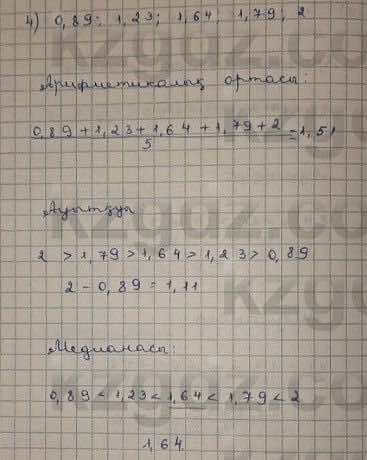 4) 0,89; 1,23; 1,64; 1,79; 2
Арифметикалық ортасы:
0,89 + 1,23 + 1,64 + 1,79 + 2 = 1,51
5
Ауытқуы
2 > 1,79 > 1,64 > 1,23 > 0,89
2 - 0,89 = 1,11
Медианасы:
0,89 < 1,23 < 1,64 < 1,79 < 2
1,64